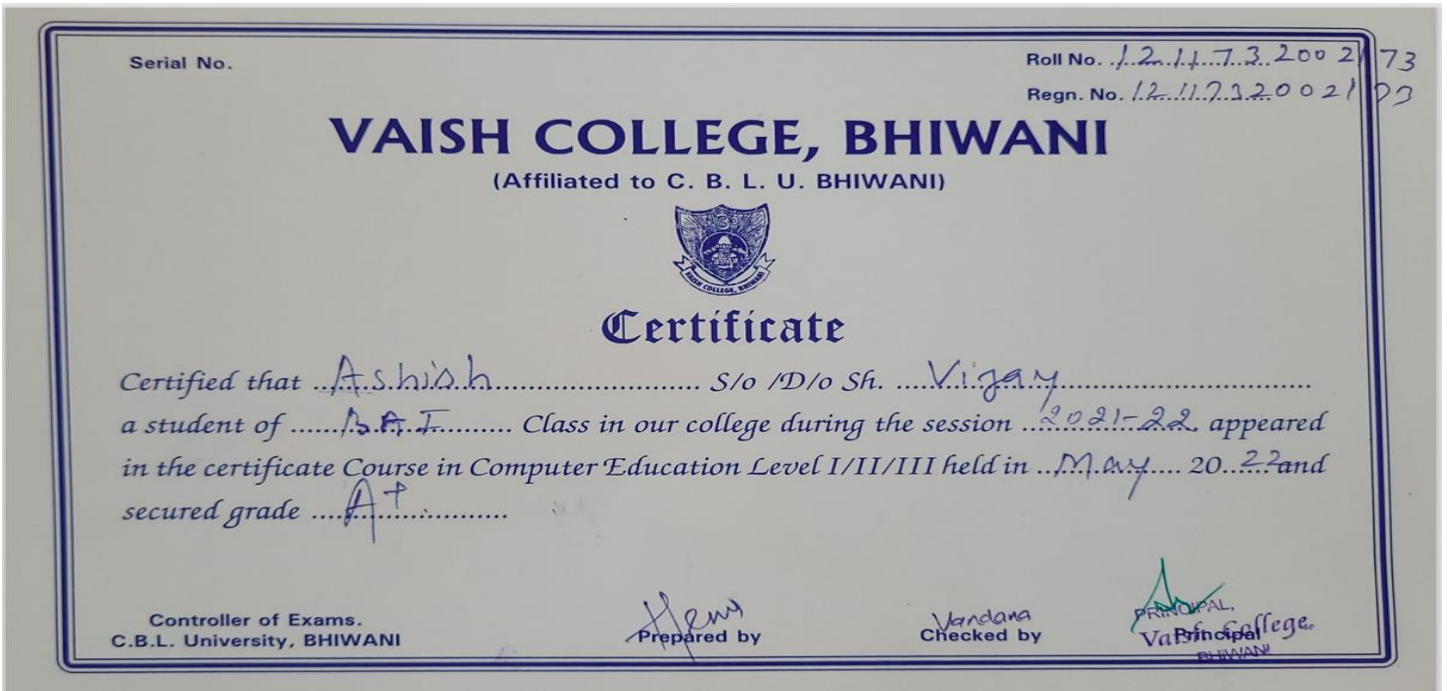 Serial No.
Roll No. 1211732002173
Regn. No. 1211732002173
VAISH COLLEGE, BHIWANI
(Affiliated to C. B. L. U. BHIWANI)
VAISH COLLEGE, BHIWANI
Certificate
Certified that Ashish S/o /D/o Sh. Vijay
a student of B.A.I Class in our college during the session 2021-22 appeared
in the certificate Course in Computer Education Level I/II/III held in May 2022 and
secured grade A+
Controller of Exams.
C.B.L. University, BHIWANI
Prepared by
Vandana
Checked by
PRINCIPAL,
Vaish College
Principal
BHIWANI